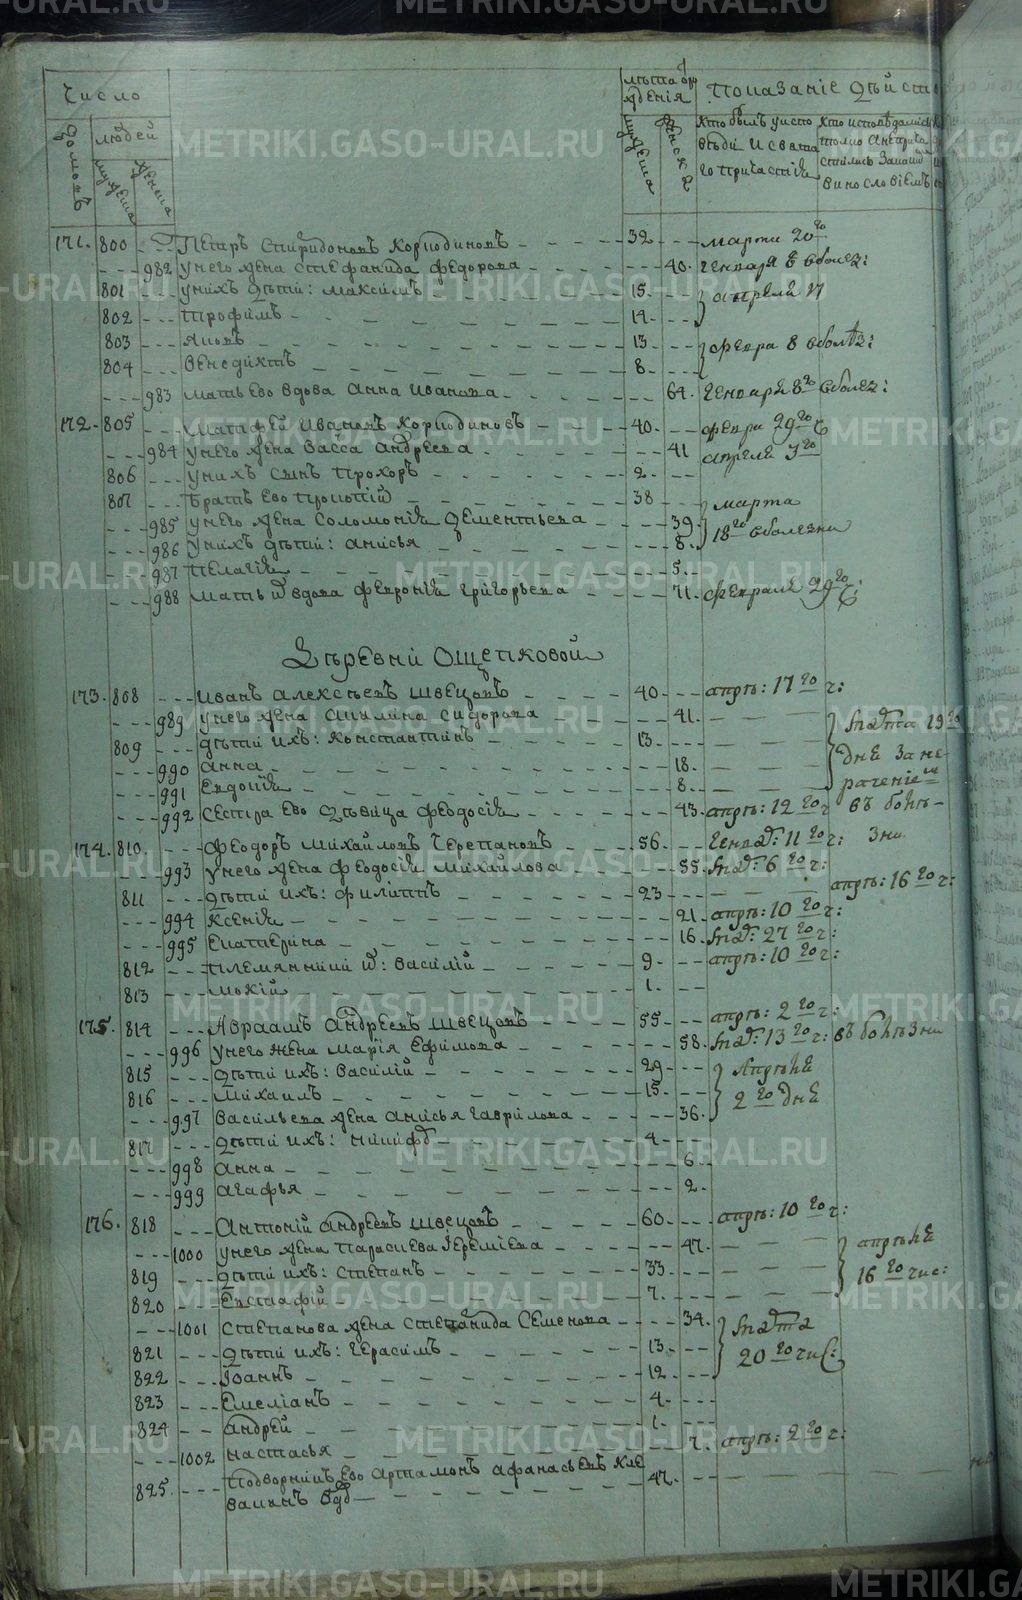 METRIKI.GASO-URAL.RU
Число
домовъ
людей
мужеска
женска
лѣта рождения
мужеска
женска
Показаніе дѣйст
кто былъ у исповѣди и свята
го причастія
кто исповѣдались
токмо
вино словіемъ
171. 800 Петръ Спиридоновъ Корюдиновъ 32 марта 20го
982 у него жена Стефанида Федорова 40 генваря 8 вболез:
801 у нихъ дѣти: Максимъ 15 апреля 17
802 Трофимъ 14
803 Яковъ 13 февра 8 вболѣз:
804 Венедиктъ 8
983 мать ево вдова Анна Иванова 64 генваря 8го вболез:
172 805 Матѳей Ивановъ Корюдиновъ 40 февра 29го
984 у него жена Васса Андреева 41 апреля 3го
806 у нихъ сынъ Прохоръ 2
807 братъ ево Прокопій 38 марта
985 у него жена Соломонія Дементьева 39 18го вболезни
986 у нихъ дѣти: Анисья 8
987 Пелагія 5
988 мать вдова Февронія Григорьева 71 февраля 29го
Деревни Ощепковой
173. 808 Иванъ Алексѣевъ Швецовъ 40 апрѣ: 17го ч:
989 у него жена Акилина Сидорова 41 марта 19го
809 дѣти ихъ: Константинъ 13 дне за не-
990 Анна 18 рачение
991 Евдокія 8
992 сестра ево дѣвица Феодосія 43 апрѣ: 12го ч въ болѣ-
174. 810 Феодоръ Михайловъ Черепановъ 56 генва: 11го ч: зни
993 у него жена Феодосія Михайлова 55 мар: 6го ч:
811 дѣти ихъ: Филиппъ 23 апрѣ: 16го ч:
994 Ксенія 21 апрѣ: 10го ч:
995 Екатерина 16 мар: 27го ч:
812 племянники: Василій 9 апрѣ: 10го ч:
813 Мокій 1
175. 814 Авраамъ Андреевъ Швецовъ 55 апрѣ: 2го ч:
996 у него жена Марія Ефимова 58 мар: 13го ч: въ болѣзни
815 дѣти ихъ: Василій 29 Апрѣле
816 Михаилъ 15 2го дне
997 Васильева жена Анисья Гаврилова 36
817 дѣти ихъ: Никифо 4
998 Анна 6
999 Агафья 2
176. 818 Антоній Андреевъ Швецовъ 60 апрѣ: 10го ч:
1000 у него жена Параскева Іереміева 47 апрѣле
819 дѣти ихъ: Степанъ 33 16го чис:
820 Евстафій 7
1001 Степанова жена Степанида Семенова 34 марта
821 дѣти ихъ: Герасимъ 13 20го чис:
822 Іоаннъ 12
823 Емеліанъ 4
824 Андрей 1
1002 Настасья 7 апрѣ: 2го ч:
825 подворникъ ево Артамонъ Афанасьевъ Кле
вакинъ вдо 47